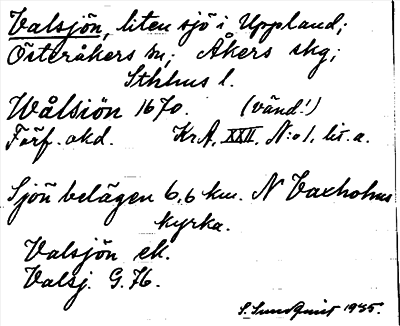 Valsjön, liten sjö i Uppland;
Österåkers sn; Åkers skg;
Sthlms l.
Wålsiön 1670. (vänd!)
Förf. okd. Kr.A, XXII, N:o 1, lit. a.
Sjön belägen 6,6 km. N Vaxholms
kyrka.
Valsjön ek.
Valsj. G. 76.
S. Sundquist 1935.